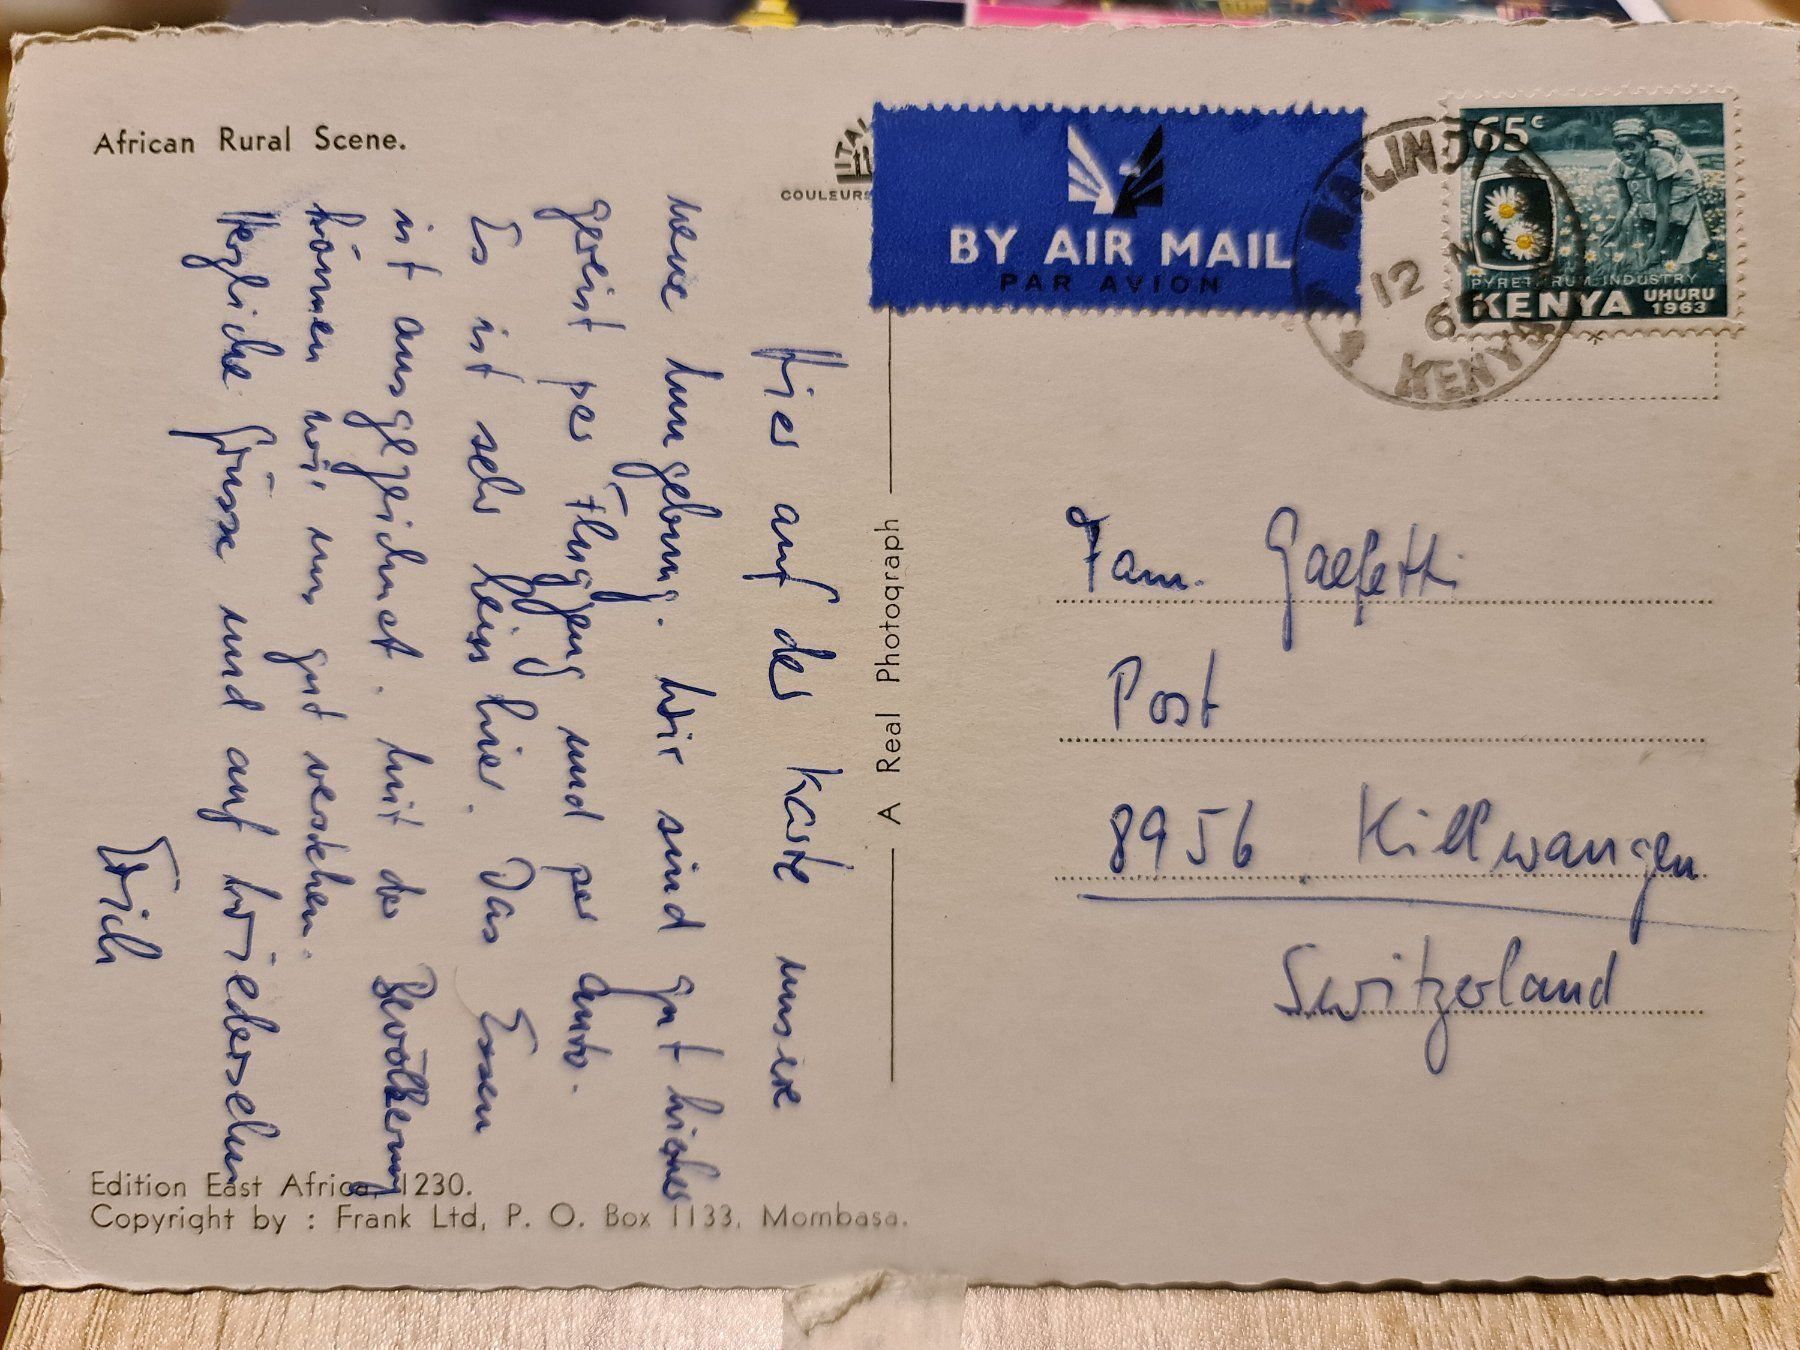 African Rural Scene.
ITAL
COULEURS
BY AIR MAIL
PAR AVION
MALINDI
12
KENYA
65c
PYRETHRUM INDUSTRY
KENYA UHURU
1963
Hier auf der Karte unsere
neue Umgebung. Wir sind gut hierher
gereist per Flugzeug und per Auto.
Es ist sehr heiss hier. Das Essen
ist ausgezeichnet. Mit der Bevölkerung
können wir uns gut verstehen.
Herzliche Grüsse und auf Wiedersehn
Erich
A Real Photograph
Fam. Gaefetti
Post
8956 Killwangen
Switzerland
Edition East Africa, 1230.
Copyright by : Frank Ltd, P. O. Box 1133, Mombasa.